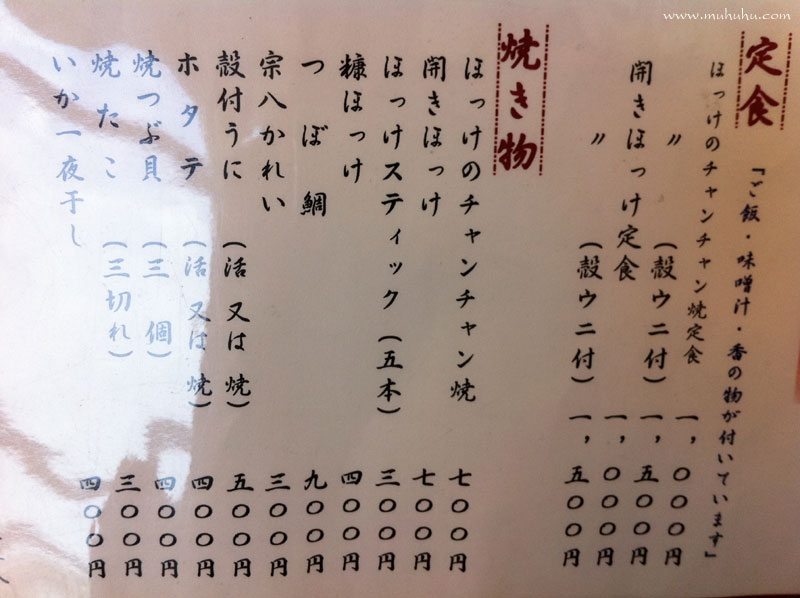 www.muhuhu.com
定食
「ご飯・味噌汁・香の物が付いています」
ほっけのチャンチャン焼定食 一,〇〇〇円
〃 (殻ウニ付) 一,五〇〇円
開きほっけ定食 一,〇〇〇円
〃 (殻ウニ付) 一,五〇〇円
焼き物
ほっけのチャンチャン焼 七〇〇円
開きほっけ 七〇〇円
ほっけスティック (五本) 三〇〇円
糠ほっけ 四〇〇円
つぼ鯛 九〇〇円
宗八かれい 三〇〇円
殻付うに (活又は焼) 五〇〇円
ホタテ (活又は焼) 四〇〇円
焼つぶ貝 (三個) 四〇〇円
焼たこ (三切れ) 三〇〇円
いか一夜干し 四〇〇円